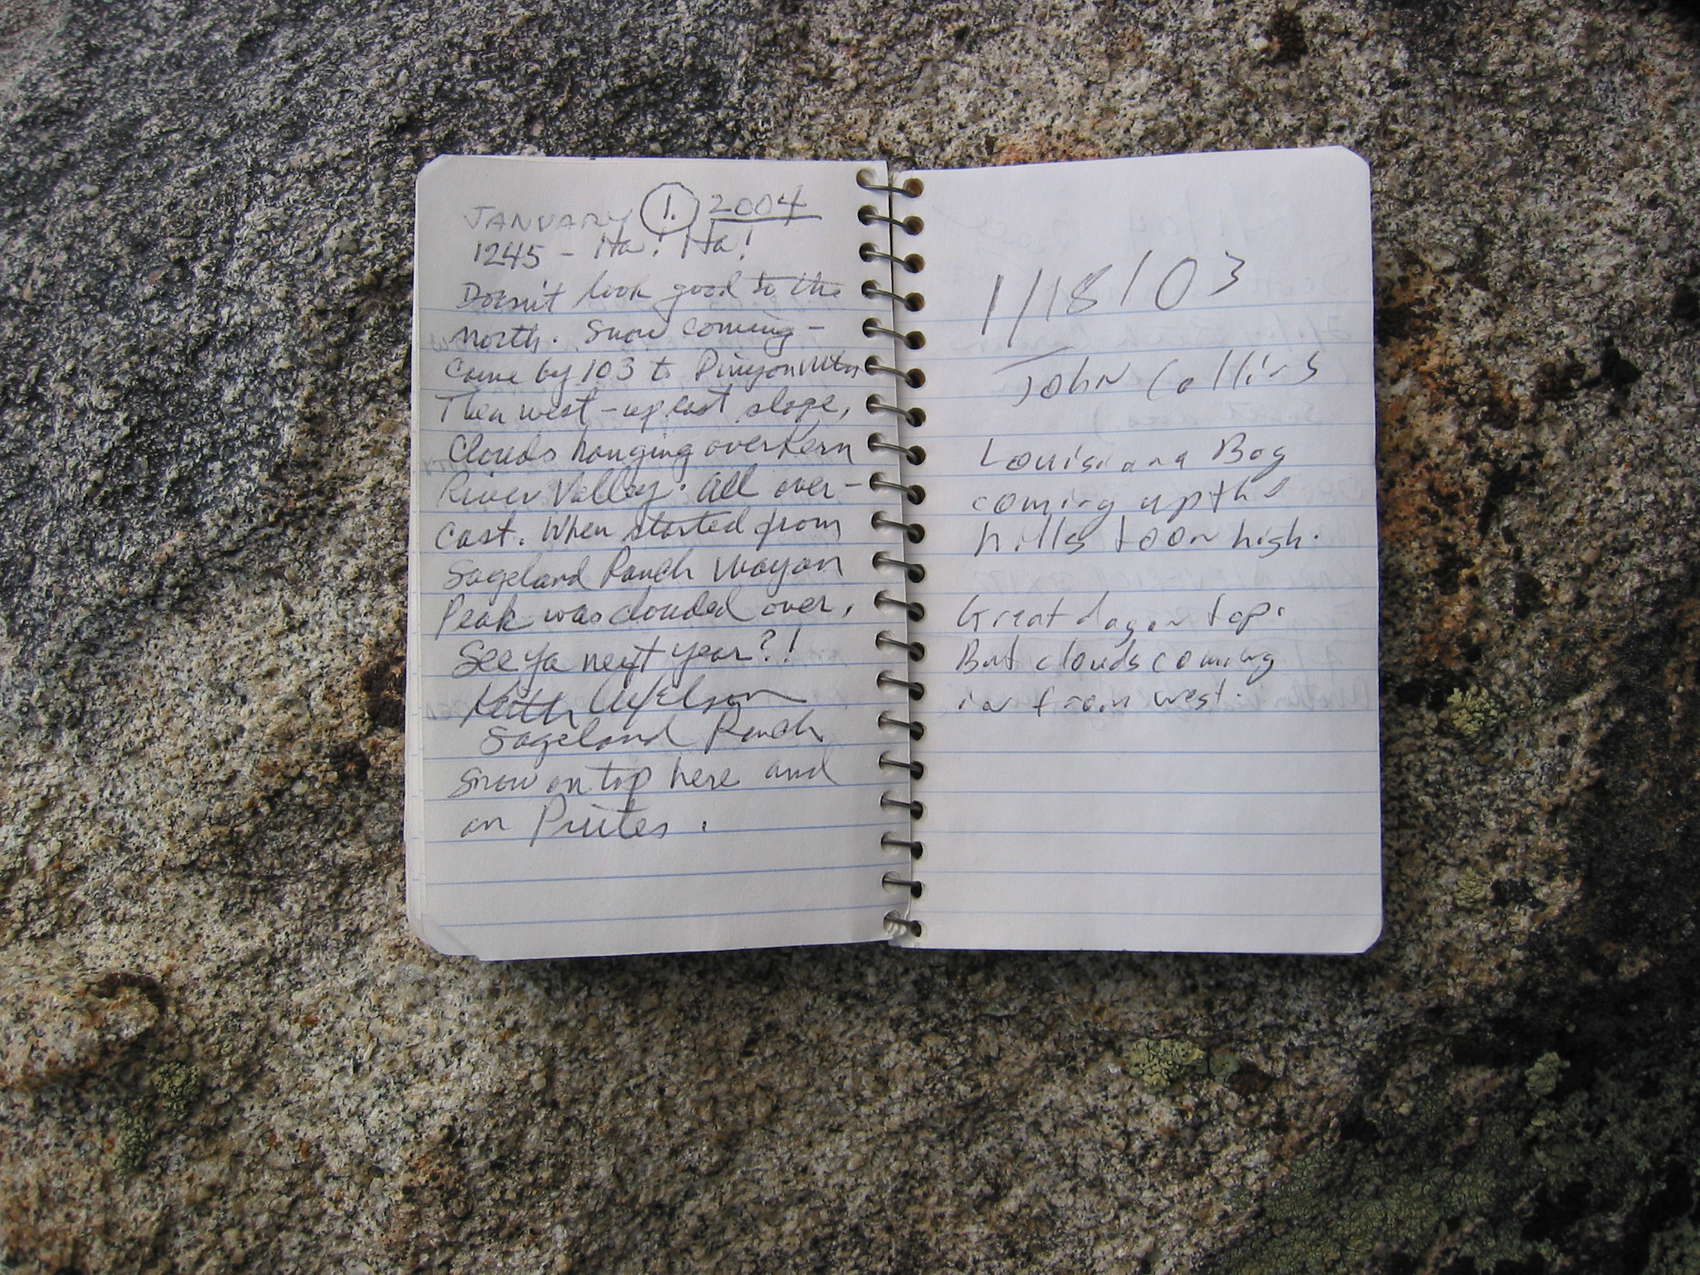 JANUARY 1. 2004
1245 - Ha! Ha!
Doesn't look good to the
north. Snow coming -
Came by 103 to Pinyon Mtn
Then west - up east slope,
Clouds hanging over Kern
River Valley. All over-
cast. When started from
Sageland Ranch Mayan
Peak was clouded over.
See ya next year?!
Keith
Sageland Ranch
Snow on top here and
on Piutes.
1/18/03
John Collins
Louisiana Boy
coming up th
hills to on high.
Great day on top.
But clouds coming
in from west.